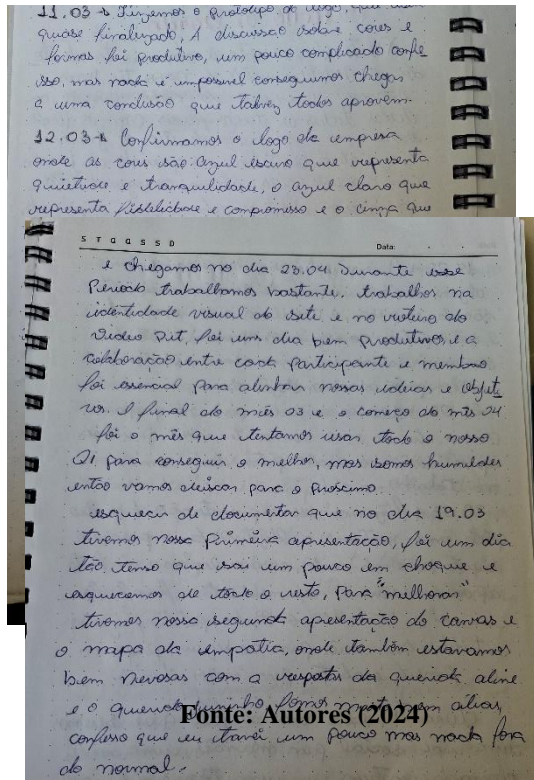 11.03 → Fizemos o protótipo do logo, que
quase finalizado, A discussão sobre cores e
formas foi produtivo, um pouco complicado confe
sso, mas nada é impossível conseguimos chegar
a uma conclusão que talvez todos aprovem.
12.03 → Confirmamos o logo da empresa
onde as cores são: azul escuro que representa
quietude e tranquilidade, o azul claro que
representa fidelidade e compromisso e o cinza que
S T Q Q S S D Data: . .
e chegamos no dia 23.04 Durante esse
Período trabalhamos bastante. trabalhos na
identidade visual do site e no roteiro do
video Pit, foi uns dia bem produtivos e a
colaboração entre cada participante e membro
foi essencial para alinhar nossas idéias e objet
vos. O final do mês 03 e o começo do mês 04
foi o mês que tentamos usar todo o nosso
QI para conseguir o melhor, mas somos humildes
então vamos deixar para o próximo
esqueci de documentar que no dia 19.03
tivemos nossa primeira apresentação, foi um dia
tão tenso que sai um pouco em choque e
esquecemos de todo o resto, para "melhorar"
tivemos nossa segunda apresentação do canvas e
o mapa da empatia, onde também estavamos
bem nervosas com a respostas da querida aline
e o querido juninho fomos bem
Fonte: Autores (2024)
confesso que eu travei um pouco mas nada fora
do normal.